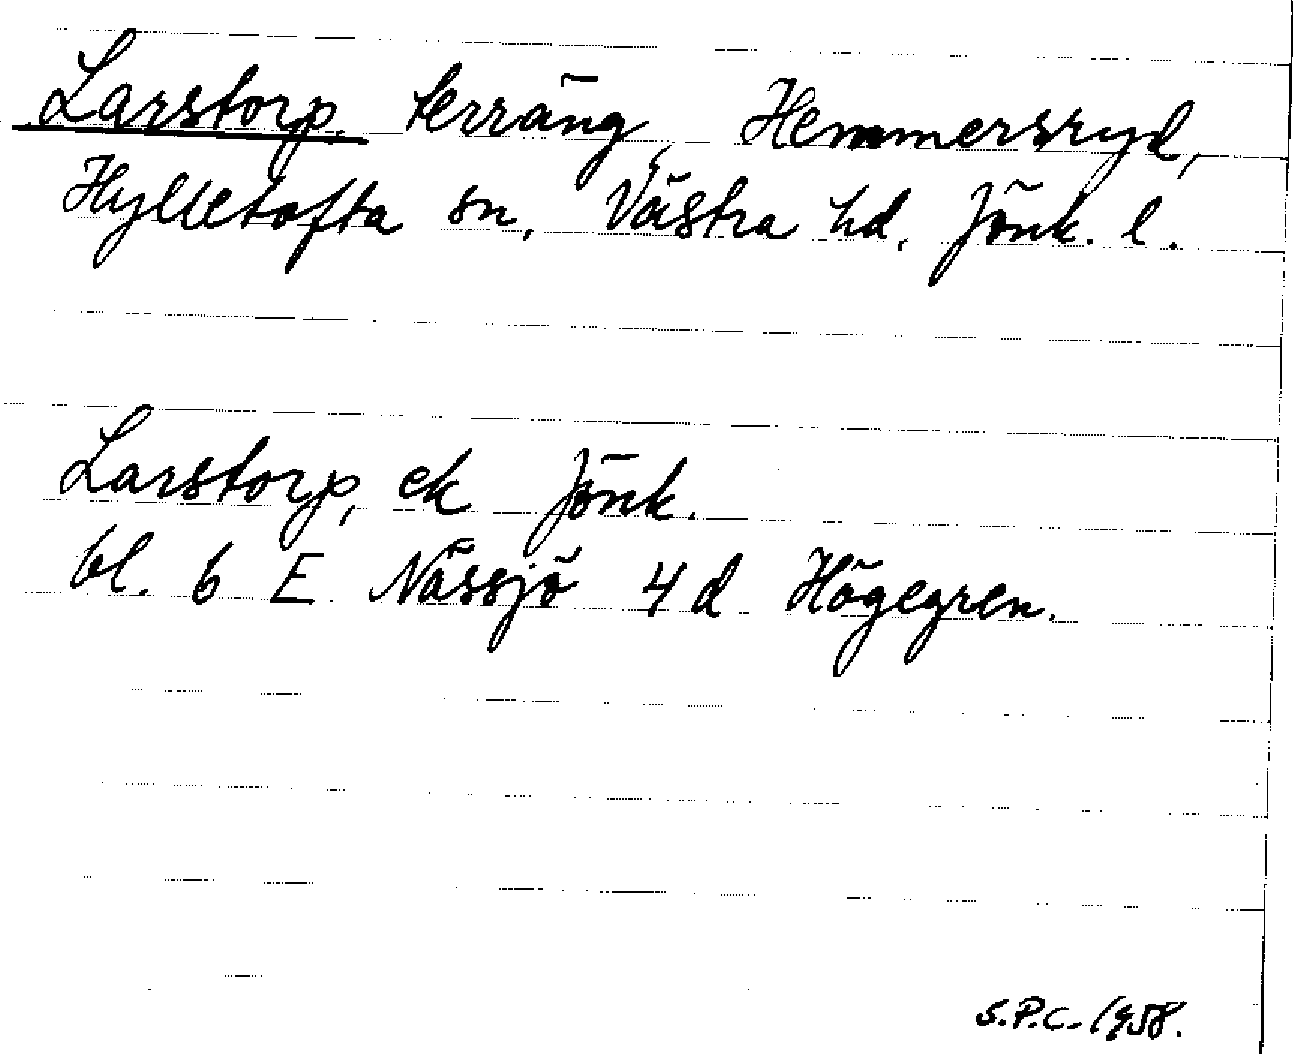 Larstorp terräng Hemmersryd,
Hylletofta sn, Västra hd. Jönk. l.
Larstorp, ek Jönk.
bl. 6 E Nässjö 4 d Högegren.
S.P.C. 1958.